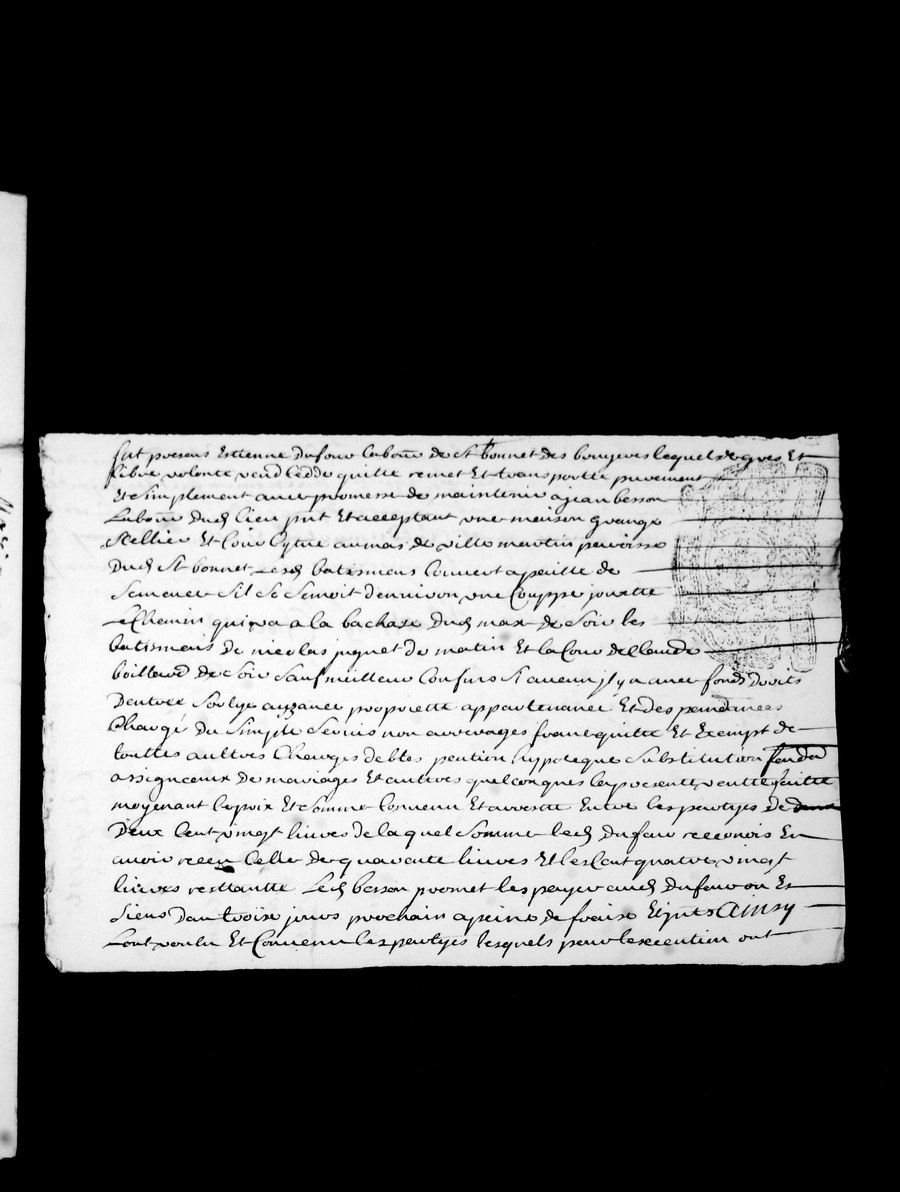 fut presens Estienne Dufour labour de st bonnet des bruyeres lequel de gres Et
libre volonte vend cedde quitte remet Et transporte purement
Et simplement avec promesse de maintenir a jean besson
labour dud lieu pnt Et acceptant une maison grange
Et Cour au mas de ville martin parroisse
Dud St bonnet Lesd batimens Couvert a paille de
Semener sil se semoit denviron une Couppe jouxte
Le Chemin qui va a la bachase Dud max de Soir les
batimens de nicolas juguet de matin Et la Cour de Claude
de Soir Sauf meilleur Confins Si aucun jl y a avec fonds Droits
Dentree Sortye ayzance propriette appartenance Et despendances
Chargé du Simple Servis non arrerages franc quitte Et Exempt de
touttes aultres Charges debtes pention hypoteque Substitution
assignceaux de mariages Et autres quelconques la presente vente faitte
moyenant le prix Et somme Convenu Et arreste Entre les partyes De
Deux Cent vingt livres de laquel Somme led Dufour reconois En
avoir receu Celle de quarente livres Et les Cent quatre vingt
livres resttantte Led besson promet les payer aud Dufour ou Es
Siens Dau troise jours prochain a peine de fraise Et jnts Ainsy
Lont voulu Et Convenu les partyes lesquels pour lexecution ont